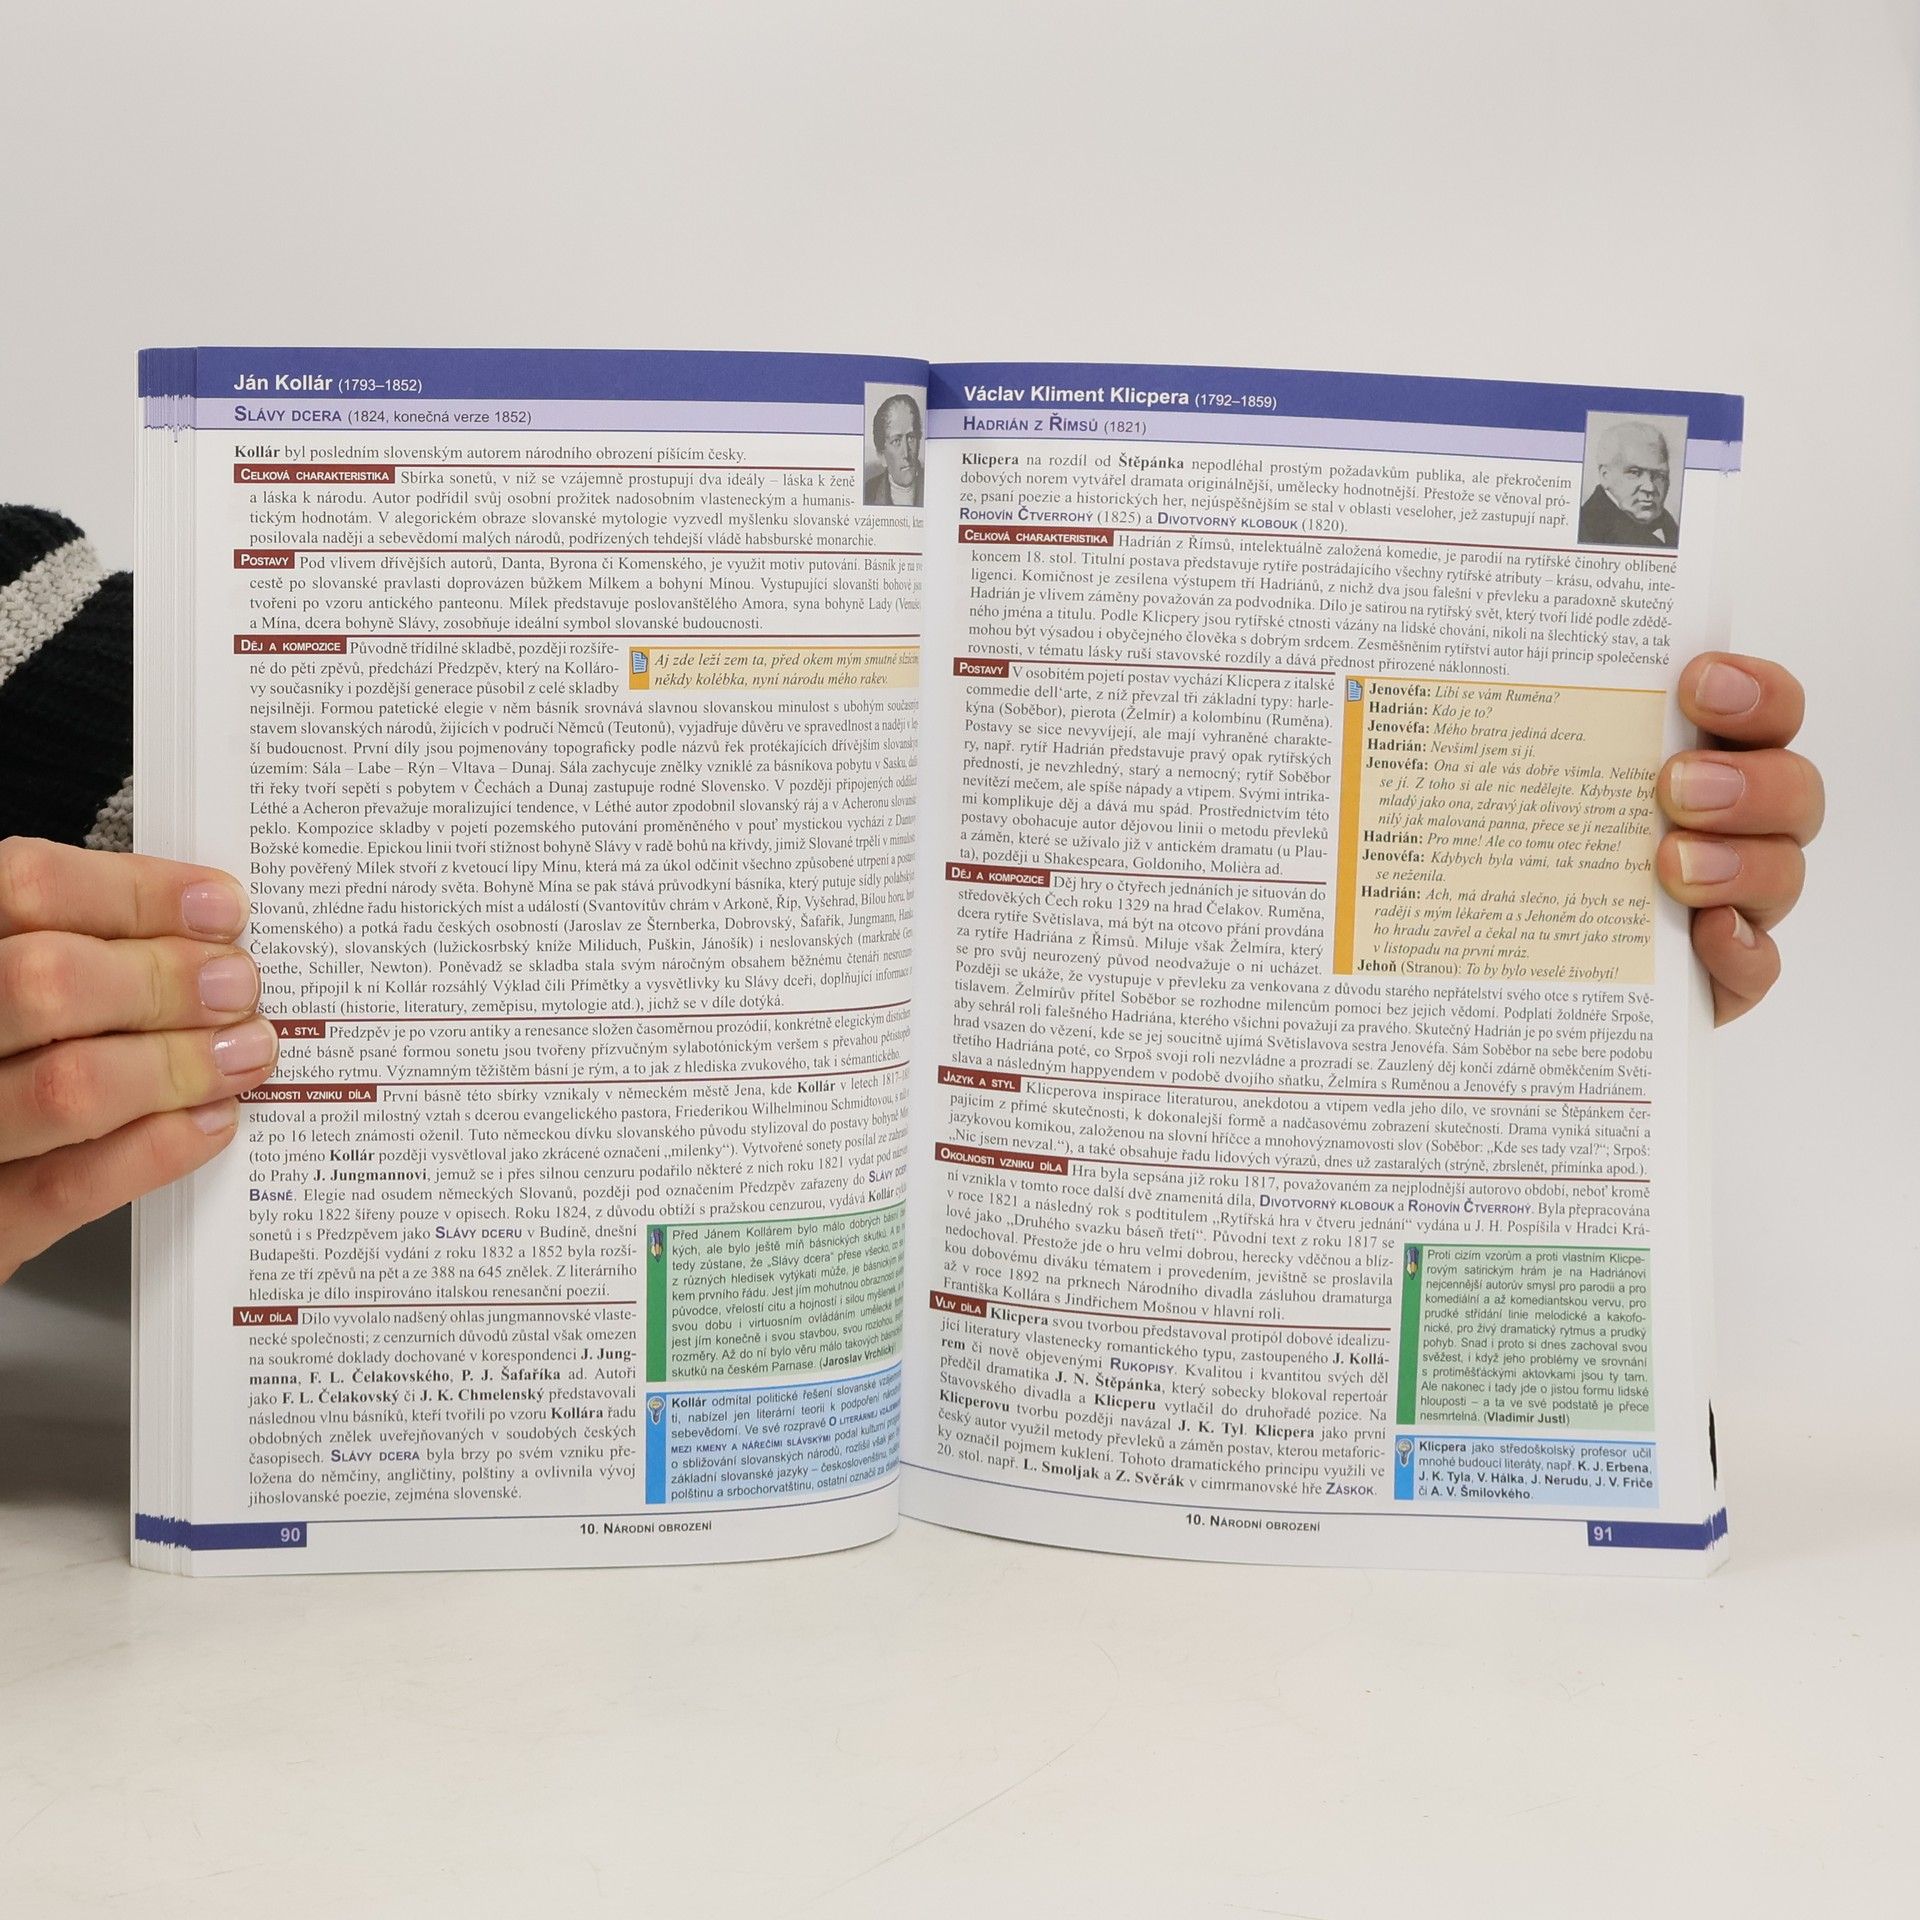 Ján Kollár (1793–1852)
SLÁVY DCERA (1824, konečná verze 1852)
Kollár byl posledním slovenským autorem národního obrození píšícím česky.
CELKOVÁ CHARAKTERISTIKA Sbírka sonetů, v níž se vzájemně prostupují dva ideály – láska k ženě
a láska k národu. Autor podřídil svůj osobní prožitek nadosobním vlasteneckým a humanis-
tickým hodnotám. V alegorickém obraze slovanské mytologie vyzvedl myšlenku slovanské vzájemnosti,
posilovala naději a sebevědomí malých národů, podřízených tehdejší vládě habsburské monarchie.
POSTAVY Pod vlivem dřívějších autorů, Danta, Byrona či Komenského, je využit motiv putování. Básník je na
cestě po slovanské pravlasti doprovázen bůžkem Mílkem a bohyní Mínou. Vystupující slovanští bohové
tvořeni po vzoru antického panteonu. Mílek představuje poslovanštělého Amora, syna bohyně Lady
a Mína, dcera bohyně Slávy, zosobňuje ideální symbol slovanské budoucnosti.
DĚJ A KOMPOZICE Původně třídílné skladbě, později rozšíře-
né do pěti zpěvů, předchází Předzpěv, který na Kolláro-
vy současníky i pozdější generace působil z celé skladby
Aj zde leží zem ta, před okem mým smutně
někdy kolébka, nyní národu mého rakev.
nejsilněji. Formou patetické elegie v něm básník srovnává slavnou slovanskou minulost s ubohým
stavem slovanských národů, žijících v područí Němců (Teutonů), vyjadřuje důvěru ve spravedlnost a naději v
ší budoucnost. První díly jsou pojmenovány topograficky podle názvů řek protékajících dřívějším
územím: Sála – Labe – Rýn – Vltava – Dunaj. Sála zachycuje znělky vzniklé za básníkova pobytu v Sasku,
tři řeky tvoří sepětí s pobytem v Čechách a Dunaj zastupuje rodné Slovensko. V později připojených
Léthé a Acheron převažuje moralizující tendence, v Léthé autor zpodobnil slovanský ráj a v Acheronu
peklo. Kompozice skladby v pojetí pozemského putování proměněného v pouť mystickou vychází z
Božské komedie. Epickou linii tvoří stížnost bohyně Slávy v radě bohů na křivdy, jimiž Slované trpěli v
Bohy pověřený Mílek stvoří z kvetoucí lípy Mínu, která má za úkol odčinit všechno způsobené utrpení a
Slovany mezi přední národy světa. Bohyně Mína se pak stává průvodkyní básníka, který putuje sídly
Slovanů, zhlédne řadu historických míst a událostí (Svantovítův chrám v Arkoně, Říp, Vyšehrad, Bílou horu,
Komenského) a potká řadu českých osobností (Jaroslav ze Šternberka, Dobrovský, Šafařík, Jungmann,
Čelakovský), slovanských (lužickosrbský kníže Miliduch, Puškin, Jánošík) i neslovanských (markrabě
Goethe, Schiller, Newton). Poněvadž se skladba stala svým náročným obsahem běžnému čtenáři
lnou, připojil k ní Kollár rozsáhlý Výklad čili Přímětky a vysvětlivky ku Slávy dceři, doplňující informace
šech oblastí (historie, literatury, zeměpisu, mytologie atd.), jichž se v díle dotýká.
A STYL Předzpěv je po vzoru antiky a renesance složen časoměrnou prozódií, konkrétně elegickým
edné básně psané formou sonetu jsou tvořeny přízvučným sylabotónickým veršem s převahou
chejského rytmu. Významným těžištěm básní je rým, a to jak z hlediska zvukového, tak i sémantického.
OKOLNOSTI VZNIKU DÍLA První básně této sbírky vznikaly v německém městě Jena, kde Kollár v letech
studoval a prožil milostný vztah s dcerou evangelického pastora, Friederikou Wilhelminou Schmidtovou,
až po 16 letech známosti oženil. Tuto německou dívku slovanského původu stylizoval do postavy bohyně
(toto jméno Kollár později vysvětloval jako zkrácené označení „milenky“). Vytvořené sonety posílal ze
do Prahy J. Jungmannovi, jemuž se i přes silnou cenzuru podařilo některé z nich roku 1821 vydat pod
BÁSNĚ. Elegie nad osudem německých Slovanů, později pod označením Předzpěv zařazeny do SLÁVY
byly roku 1822 šířeny pouze v opisech. Roku 1824, z důvodu obtíží s pražskou cenzurou, vydává Kollár
sonetů i s Předzpěvem jako SLÁVY DCERU v Budíně, dnešní
Budapešti. Pozdější vydání z roku 1832 a 1852 byla rozší-
řena ze tří zpěvů na pět a ze 388 na 645 znělek. Z literárního
hlediska je dílo inspirováno italskou renesanční poezií.
VLIV DÍLA Dílo vyvolalo nadšený ohlas jungmannovské vlaste-
necké společnosti; z cenzurních důvodů zůstal však omezen
na soukromé doklady dochované v korespondenci J. Jung-
manna, F. L. Čelakovského, P. J. Šafaříka ad. Autoři
jako F. L. Čelakovský či J. K. Chmelenský představovali
následnou vlnu básníků, kteří tvořili po vzoru Kollára řadu
obdobných znělek uveřejňovaných v soudobých českých
časopisech. SLÁVY DCERA byla brzy po svém vzniku pře-
ložena do němčiny, angličtiny, polštiny a ovlivnila vývoj
jihoslovanské poezie, zejména slovenské.
Před Jánem Kollárem bylo málo dobrých básní
kých, ale bylo ještě míň básnických skutků. A
tedy zůstane, že „Slávy dcera“ přese všecko, co
z různých hledisek vytýkati může, je básnickým
kem prvního řádu. Jest jím mohutnou obrazností
původce, vřelostí citu a hojností i silou myšlenek,
svou dobu i virtuosním ovládáním umělecké
jest jím konečně i svou stavbou, svou rozlohou,
rozměry. Až do ní bylo věru málo takových
skutků na českém Parnase. (Jaroslav Vrchlický)
Kollár odmítal politické řešení slovanské
ti, nabízel jen literární teorii k podpoření
sebevědomí. Ve své rozpravě O LITERÁRNEJ
MEZI KMENY A NÁŘEČÍMI SLÁVSKÝMI podal kulturní
o sbližování slovanských národů, rozlišil však jen
základní slovanské jazyky – českoslovenštinu,
polštinu a srbochorvatštinu, ostatní označil za
90
10. NÁRODNÍ OBROZENÍ
Václav Kliment Klicpera (1792–1859)
HADRIÁN Z ŘÍMSŮ (1821)
Klicpera na rozdíl od Štěpánka nepodléhal prostým požadavkům publika, ale překročením
dobových norem vytvářel dramata originálnější, umělecky hodnotnější. Přestože se věnoval pró-
ze, psaní poezie a historických her, nejúspěšnějším se stal v oblasti veseloher, jež zastupují např.
ROHOVÍN ČTVERROHÝ (1825) a DIVOTVORNÝ KLOBOUK (1820).
CELKOVÁ CHARAKTERISTIKA Hadrián z Římsů, intelektuálně založená komedie, je parodií na rytířské činohry oblíbené
koncem 18. stol. Titulní postava představuje rytíře postrádajícího všechny rytířské atributy – krásu, odvahu, inte-
ligenci. Komičnost je zesílena výstupem tří Hadriánů, z nichž dva jsou falešní v převleku a paradoxně skutečný
Hadrián je vlivem záměny považován za podvodníka. Dílo je satirou na rytířský svět, který tvoří lidé podle zdědě-
ného jména a titulu. Podle Klicpery jsou rytířské ctnosti vázány na lidské chování, nikoli na šlechtický stav, a tak
mohou být výsadou i obyčejného člověka s dobrým srdcem. Zesměšněním rytířství autor hájí princip společenské
rovnosti, v tématu lásky ruší stavovské rozdíly a dává přednost přirozené náklonnosti.
POSTAVY V osobitém pojetí postav vychází Klicpera z italské
commedie dell‘arte, z níž převzal tři základní typy: harle-
kýna (Soběbor), pierota (Želmír) a kolombínu (Ruměna).
Postavy se sice nevyvíjejí, ale mají vyhraněné charakte-
ry, např. rytíř Hadrián představuje pravý opak rytířských
předností, je nevzhledný, starý a nemocný; rytíř Soběbor
nevítězí mečem, ale spíše nápady a vtipem. Svými intrika-
mi komplikuje děj a dává mu spád. Prostřednictvím této
postavy obohacuje autor dějovou linii o metodu převleků
a záměn, které se užívalo již v antickém dramatu (u Plau-
ta), později u Shakespeara, Goldoniho, Molièra ad.
Jenovéfa: Líbí se vám Ruměna?
Hadrián: Kdo je to?
Jenovéfa: Mého bratra jediná dcera.
Hadrián: Nevšiml jsem si jí.
Jenovéfa: Ona si ale vás dobře všimla. Nelíbíte
se jí. Z toho si ale nic nedělejte. Kdybyste byl
mladý jako ona, zdravý jak olivový strom a spa-
nilý jak malovaná panna, přece se jí nezalíbíte.
Hadrián: Pro mne! Ale co tomu otec řekne!
Jenovéfa: Kdybych byla vámi, tak snadno bych
se neženila.
Hadrián: Ach, má drahá slečno, já bych se nej-
raději s mým lékařem a s Jehoněm do otcovské-
ho hradu zavřel a čekal na tu smrt jako stromy
v listopadu na první mráz.
Jehoň (Stranou): To by bylo veselé živobytí!
DĚJ A KOMPOZICE Děj hry o čtyřech jednáních je situován do
středověkých Čech roku 1329 na hrad Čelakov. Ruměna,
dcera rytíře Světislava, má být na otcovo přání provdána
za rytíře Hadriána z Římsů. Miluje však Želmíra, který
se pro svůj neurozený původ neodvažuje o ni ucházet.
Později se ukáže, že vystupuje v převleku za venkovana z důvodu starého nepřátelství svého otce s rytířem Svě-
tislavem. Želmírův přítel Soběbor se rozhodne milencům pomoci bez jejich vědomí. Podplatí žoldnéře Srpoše,
aby sehrál roli falešného Hadriána, kterého všichni považují za pravého. Skutečný Hadrián je po svém příjezdu na
hrad vsazen do vězení, kde se jej soucitně ujímá Světislavova sestra Jenovéfa. Sám Soběbor na sebe bere podobu
třetího Hadriána poté, co Srpoš svoji roli nezvládne a prozradí se. Zauzlený děj končí zdárně obměkčením Světi-
slava a následným happyendem v podobě dvojího sňatku, Želmíra s Ruměnou a Jenovéfy s pravým Hadriánem.
JAZYK A STYL Klicperova inspirace literaturou, anekdotou a vtipem vedla jeho dílo, ve srovnání se Štěpánkem čer-
pajícím z přímé skutečnosti, k dokonalejší formě a nadčasovému zobrazení skutečnosti. Drama vyniká situační a
jazykovou komikou, založenou na slovní hříčce a mnohovýznamovosti slov (Soběbor: „Kde ses tady vzal?“; Srpoš:
„Nic jsem nevzal.“), a také obsahuje řadu lidových výrazů, dnes už zastaralých (strýně, zbrslenět, přímínka apod.).
OKOLNOSTI VZNIKU DÍLA Hra byla sepsána již roku 1817, považovaném za nejplodnější autorovo období, neboť kromě
ní vznikla v tomto roce další dvě znamenitá díla, DIVOTVORNÝ KLOBOUK a ROHOVÍN ČTVERROHÝ. Byla přepracována
v roce 1821 a následný rok s podtitulem „Rytířská hra v čtveru jednání“ vydána u J. H. Pospíšila v Hradci Krá-
lové jako „Druhého svazku báseň třetí“. Původní text z roku 1817 se
nedochoval. Přestože jde o hru velmi dobrou, herecky vděčnou a blíz-
kou dobovému diváku tématem i provedením, jevištně se proslavila
až v roce 1892 na prknech Národního divadla zásluhou dramaturga
Františka Kollára s Jindřichem Mošnou v hlavní roli.
VLIV DÍLA Klicpera svou tvorbou představoval protipól dobové idealizu-
jící literatury vlastenecky romantického typu, zastoupeného J. Kollá-
rem či nově objevenými RUKOPISY. Kvalitou i kvantitou svých děl
předčil dramatika J. N. Štěpánka, který sobecky blokoval repertoár
Stavovského divadla a Klicperu vytlačil do druhořadé pozice. Na
Klicperovu tvorbu později navázal J. K. Tyl. Klicpera jako první
český autor využil metody převleků a záměn postav, kterou metaforic-
ky označil pojmem kuklení. Tohoto dramatického principu využili ve
20. stol. např. L. Smoljak a Z. Svěrák v cimrmanovské hře ZÁSKOK.
Proti cizím vzorům a proti vlastním Klicpe-
rovým satirickým hrám je na Hadriánovi
nejcennější autorův smysl pro parodii a pro
komediální a až komediantskou vervu, pro
prudké střídání linie melodické a kakofo-
nické, pro živý dramatický rytmus a prudký
pohyb. Snad i proto si dnes zachoval svou
svěžest, i když jeho problémy ve srovnání
s protiměšťáckými aktovkami jsou ty tam.
Ale nakonec i tady jde o jistou formu lidské
hlouposti – a ta ve své podstatě je přece
nesmrtelná. (Vladimír Justl)
Klicpera jako středoškolský profesor učil
mnohé budoucí literáty, např. K. J. Erbena,
J. K. Tyla, V. Hálka, J. Nerudu, J. V. Friče
či A. V. Šmilovkého.
10. NÁRODNÍ OBROZENÍ
91